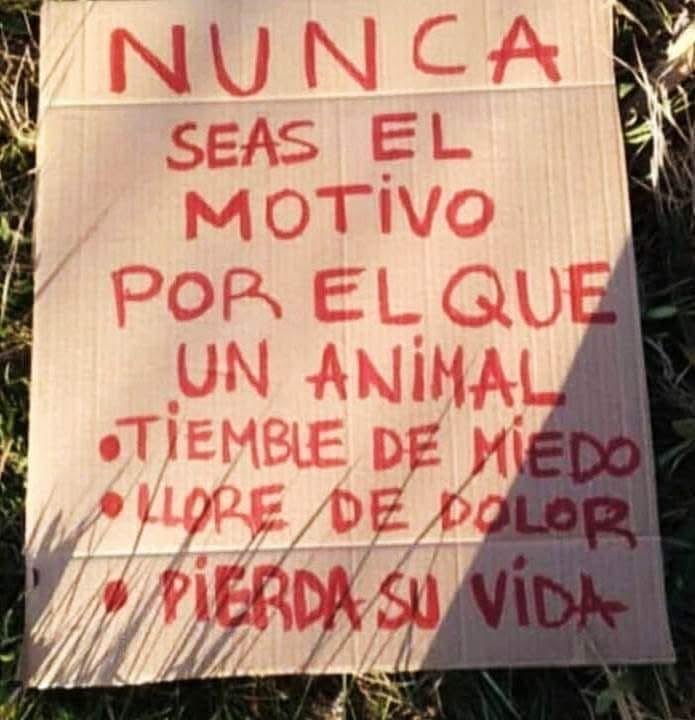 NUNCA
SEAS EL
MOTIVO
POR EL QUE
UN ANIMAL
•TIEMBLE DE MIEDO
•LLORE DE DOLOR
• PIERDA SU VIDA